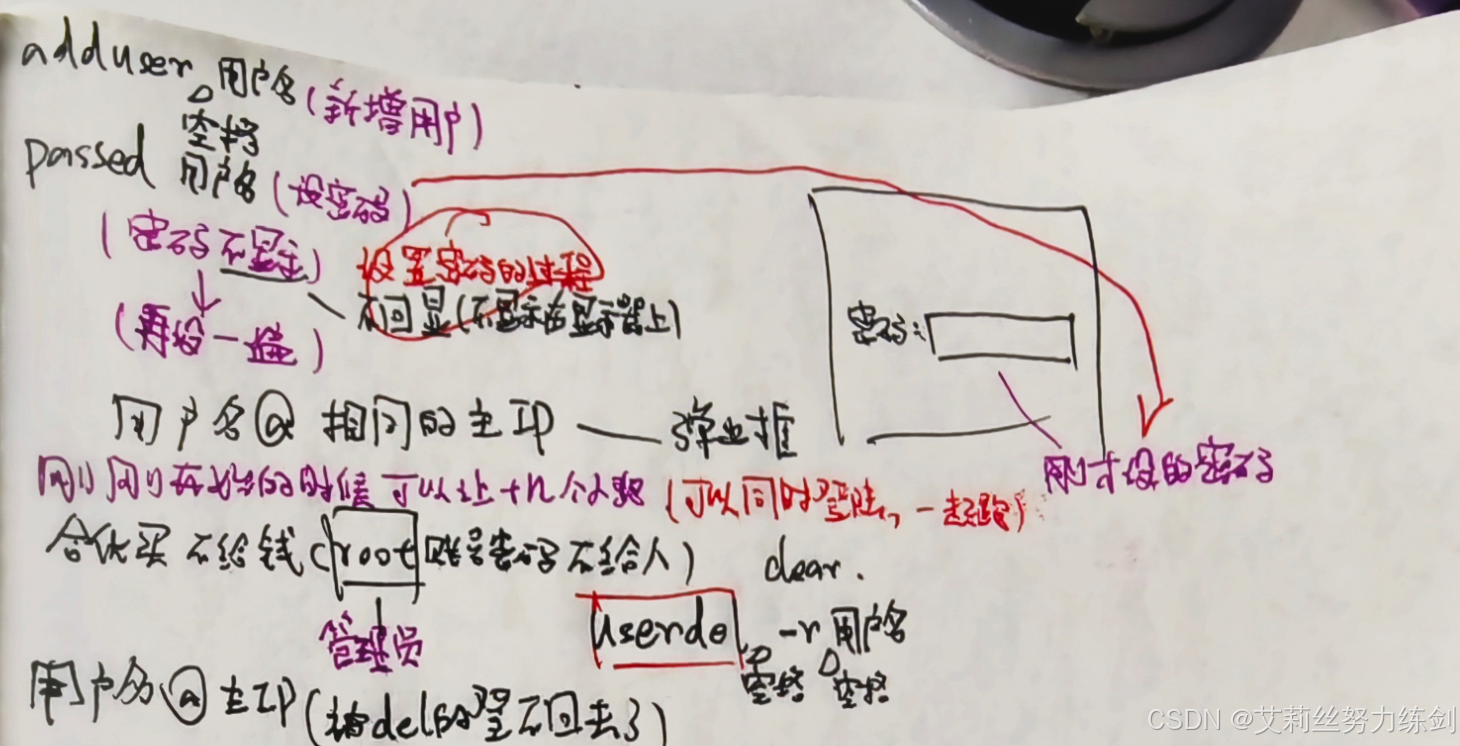 adduser 用户名 (新增用户)
空格
passed 用户名 (设密码)
(密码不显示) 设置密码的过程
不回显(不显示在显示器上)
(再设一遍)
密码:
用户名@ 相同的主IP —— 弹出框
刚才设的密码
刚刚开始的时候 可以让十几个人 (可以同时登陆, 一起
合伙买 不给钱 (root 账号密码不给人) clear.
管理员
userdel -r 用户名
空格 空格
用户名@主IP (被del的登不回去了)
CSDN @艾莉丝努力练剑